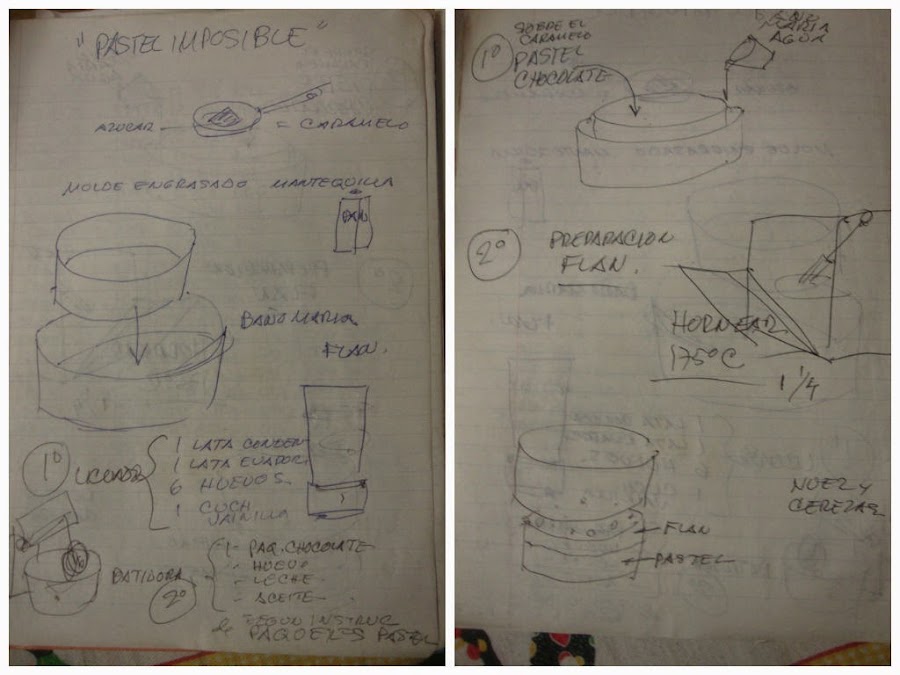 "PASTEL IMPOSIBLE"
AZUCAR = CARAMELO
MOLDE ENGRASADO MANTEQUILLA
BAÑO MARIA
FLAN.
1º LICUADORA
1 LATA CONDEN
1 LATA EVAPOR
6 HUEVOS.
1 CUCH
VAINILLA
BATIDORA
2º
1- PAQ. CHOCOLATE
- HUEVO
- LECHE
- ACEITE
SEGUN INSTRUC
PAQUETES PASTEL
1º
SOBRE EL
CARAMELO
PASTEL
CHOCOLATE
MARIA
AGUA
2º
PREPARACION
FLAN.
HORNEAR
175ºC
1 1/4
NUEZ Y
CEREZAS
FLAN
PASTEL